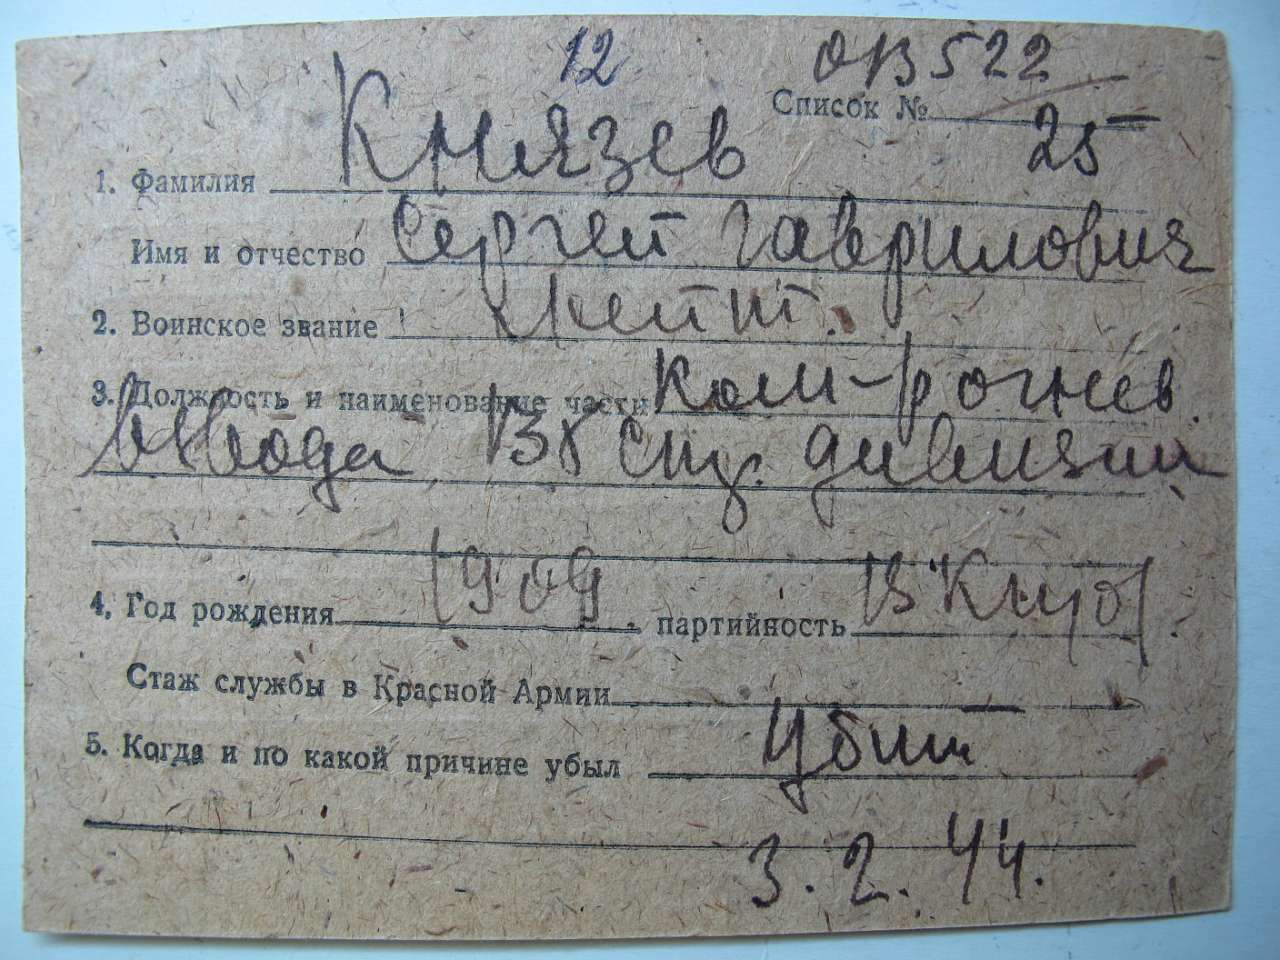 12 ОВ 522
Список № 25
1. Фамилия Князев
Имя и отчество Сергей Гаврилович
2. Воинское звание Лейт.
3. Должность и наименование части Ком-р огнев.
взвода стр. дивизии
4. Год рождения 1909. партийность ВКП(б).
Стаж службы в Красной Армии —
5. Когда и по какой причине убыл Убит
3.2.44.